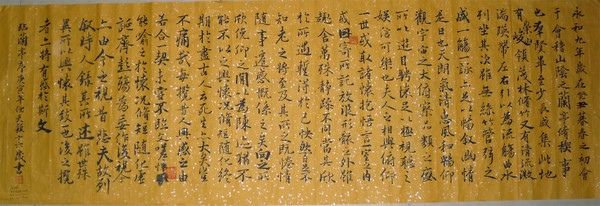 永和九年歲在癸丑暮春之初會
于會稽山陰之蘭亭脩禊事
也羣賢畢至少長咸集此地
有崇峻領茂林脩竹又有清流激
湍暎帶左右引以爲流觴曲水
列坐其次雖無絲竹管弦之
盛一觴一詠亦足以暢叙幽情
是日也天朗氣清惠風和暢仰
觀宇宙之大俯察品類之盛
所以遊目騁懷足以極視聽之
娛信可樂也夫人之相與俯仰
一世或取諸懷抱悟言一室之內
或因寄所託放浪形骸之外雖
趣舍萬殊靜躁不同當其欣
於所遇暫得於己快然自足不
知老之將至及其所之既惓情
隨事遷感慨係之矣向之所
欣俛仰之閒以爲陳迹猶不
能不以之興懷況脩短隨化終
期於盡古人云死生亦大矣豈
不痛哉每攬昔人興感之由
若合一契未嘗不臨文嗟悼不
能喻之於懷固知一死生爲虛
誕齊彭殤爲妄作後之視今
亦由今之視昔悲夫故列
叙時人錄其所述雖世殊事
異所以興懷其致一也後之攬
者亦將有感於斯文
臨蘭亭序庚寅年